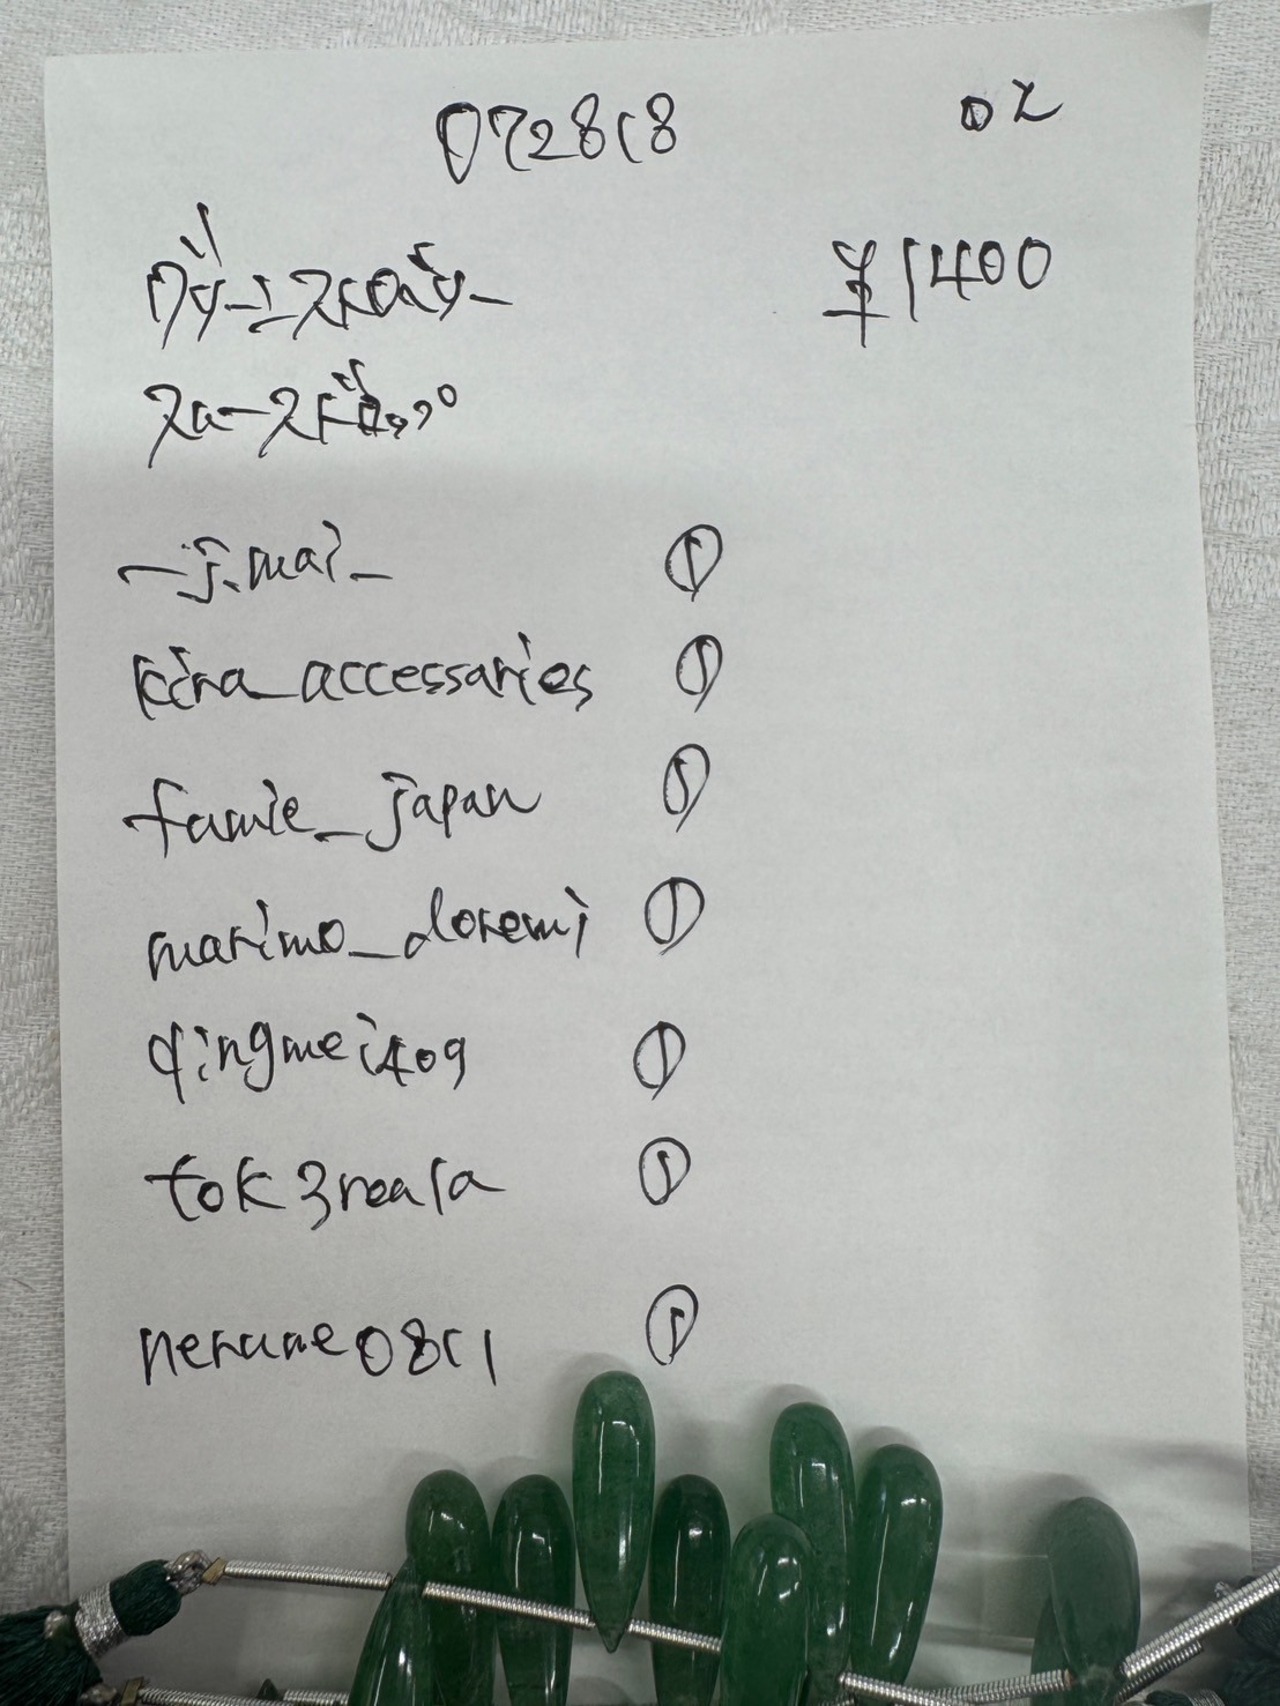 072818 OK
グリーンストロベリー ¥1400
スムースドロップ
_j.mai_ ①
kira_accessaries ①
famie_japan ①
marimo_doremi ①
qingmei409 ①
tok3reala ①
nerune0811 ①